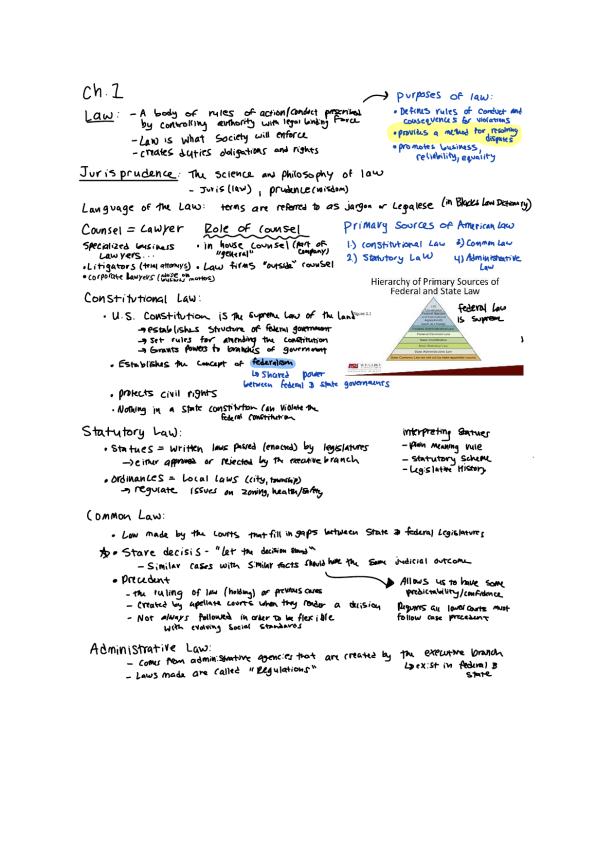 Ch. 1
Law: - A body of rules of action/conduct prescribed
by controlling authority with legal binding force
- Law is what society will enforce
- creates duties obligations and rights
Purposes of law:
• Defines rules of conduct and
consequences for violations
• provides a method for resolving
disputes
• promotes business,
reliability, equality
Jurisprudence: The science and philosophy of law
- Juris (law), prudence (wisdom)
Language of the Law: terms are referred to as jargon or Legalese (in Blacks Law Dictionary)
Counsel = Lawyer
Specialized business
Lawyers...
• Litigators (trial attorneys)
• corporate lawyers
Role of counsel
• in house counsel (part of company)
"general"
• Law firms "outside" counsel
Primary Sources of American Law
1.) constitutional Law 3) Common Law
2.) Statutory Law 4) Administrative
Law
Hierarchy of Primary Sources of
Federal and State Law
federal Law
is supreme
Constitutional Law:
• U.S. Constitution is the supreme Law of the Land
→ establishes structure of federal government
→ Set rules for amending the constitution
→ Grants powers to branches of government
• Establishes the concept of federalism
↳ Shared power
between federal & state governments
• protects civil rights
• Nothing in a state constitution can violate the
federal constitution
Statutory Law:
• Statues = Written laws passed (enacted) by legislatures
→ either approved or rejected by the executive branch
• Ordinances = Local Laws (city, township)
→ regulate issues on zoning, health/safety
interpreting Statues
- plain meaning rule
- Statutory Scheme
- Legislative History
Common Law:
• Law made by the courts that fill in gaps between State & federal Legislatures
☆ • Stare decisis - "Let the decision stand"
- Similar cases with similar facts should have the same judicial outcome
• Precedent
- the ruling of law (holding) or previous cases
- Created by apellate courts when they render a decision
- Not always followed in order to be flexible
with evolving social standards
Allows us to have some
predictability/confidence
Requires all lower courts must
follow case precedent
Administrative Law:
- comes from administrative agencies that are created by the executive branch
↳ exist in federal &
state
- Laws made are called "Regulations"